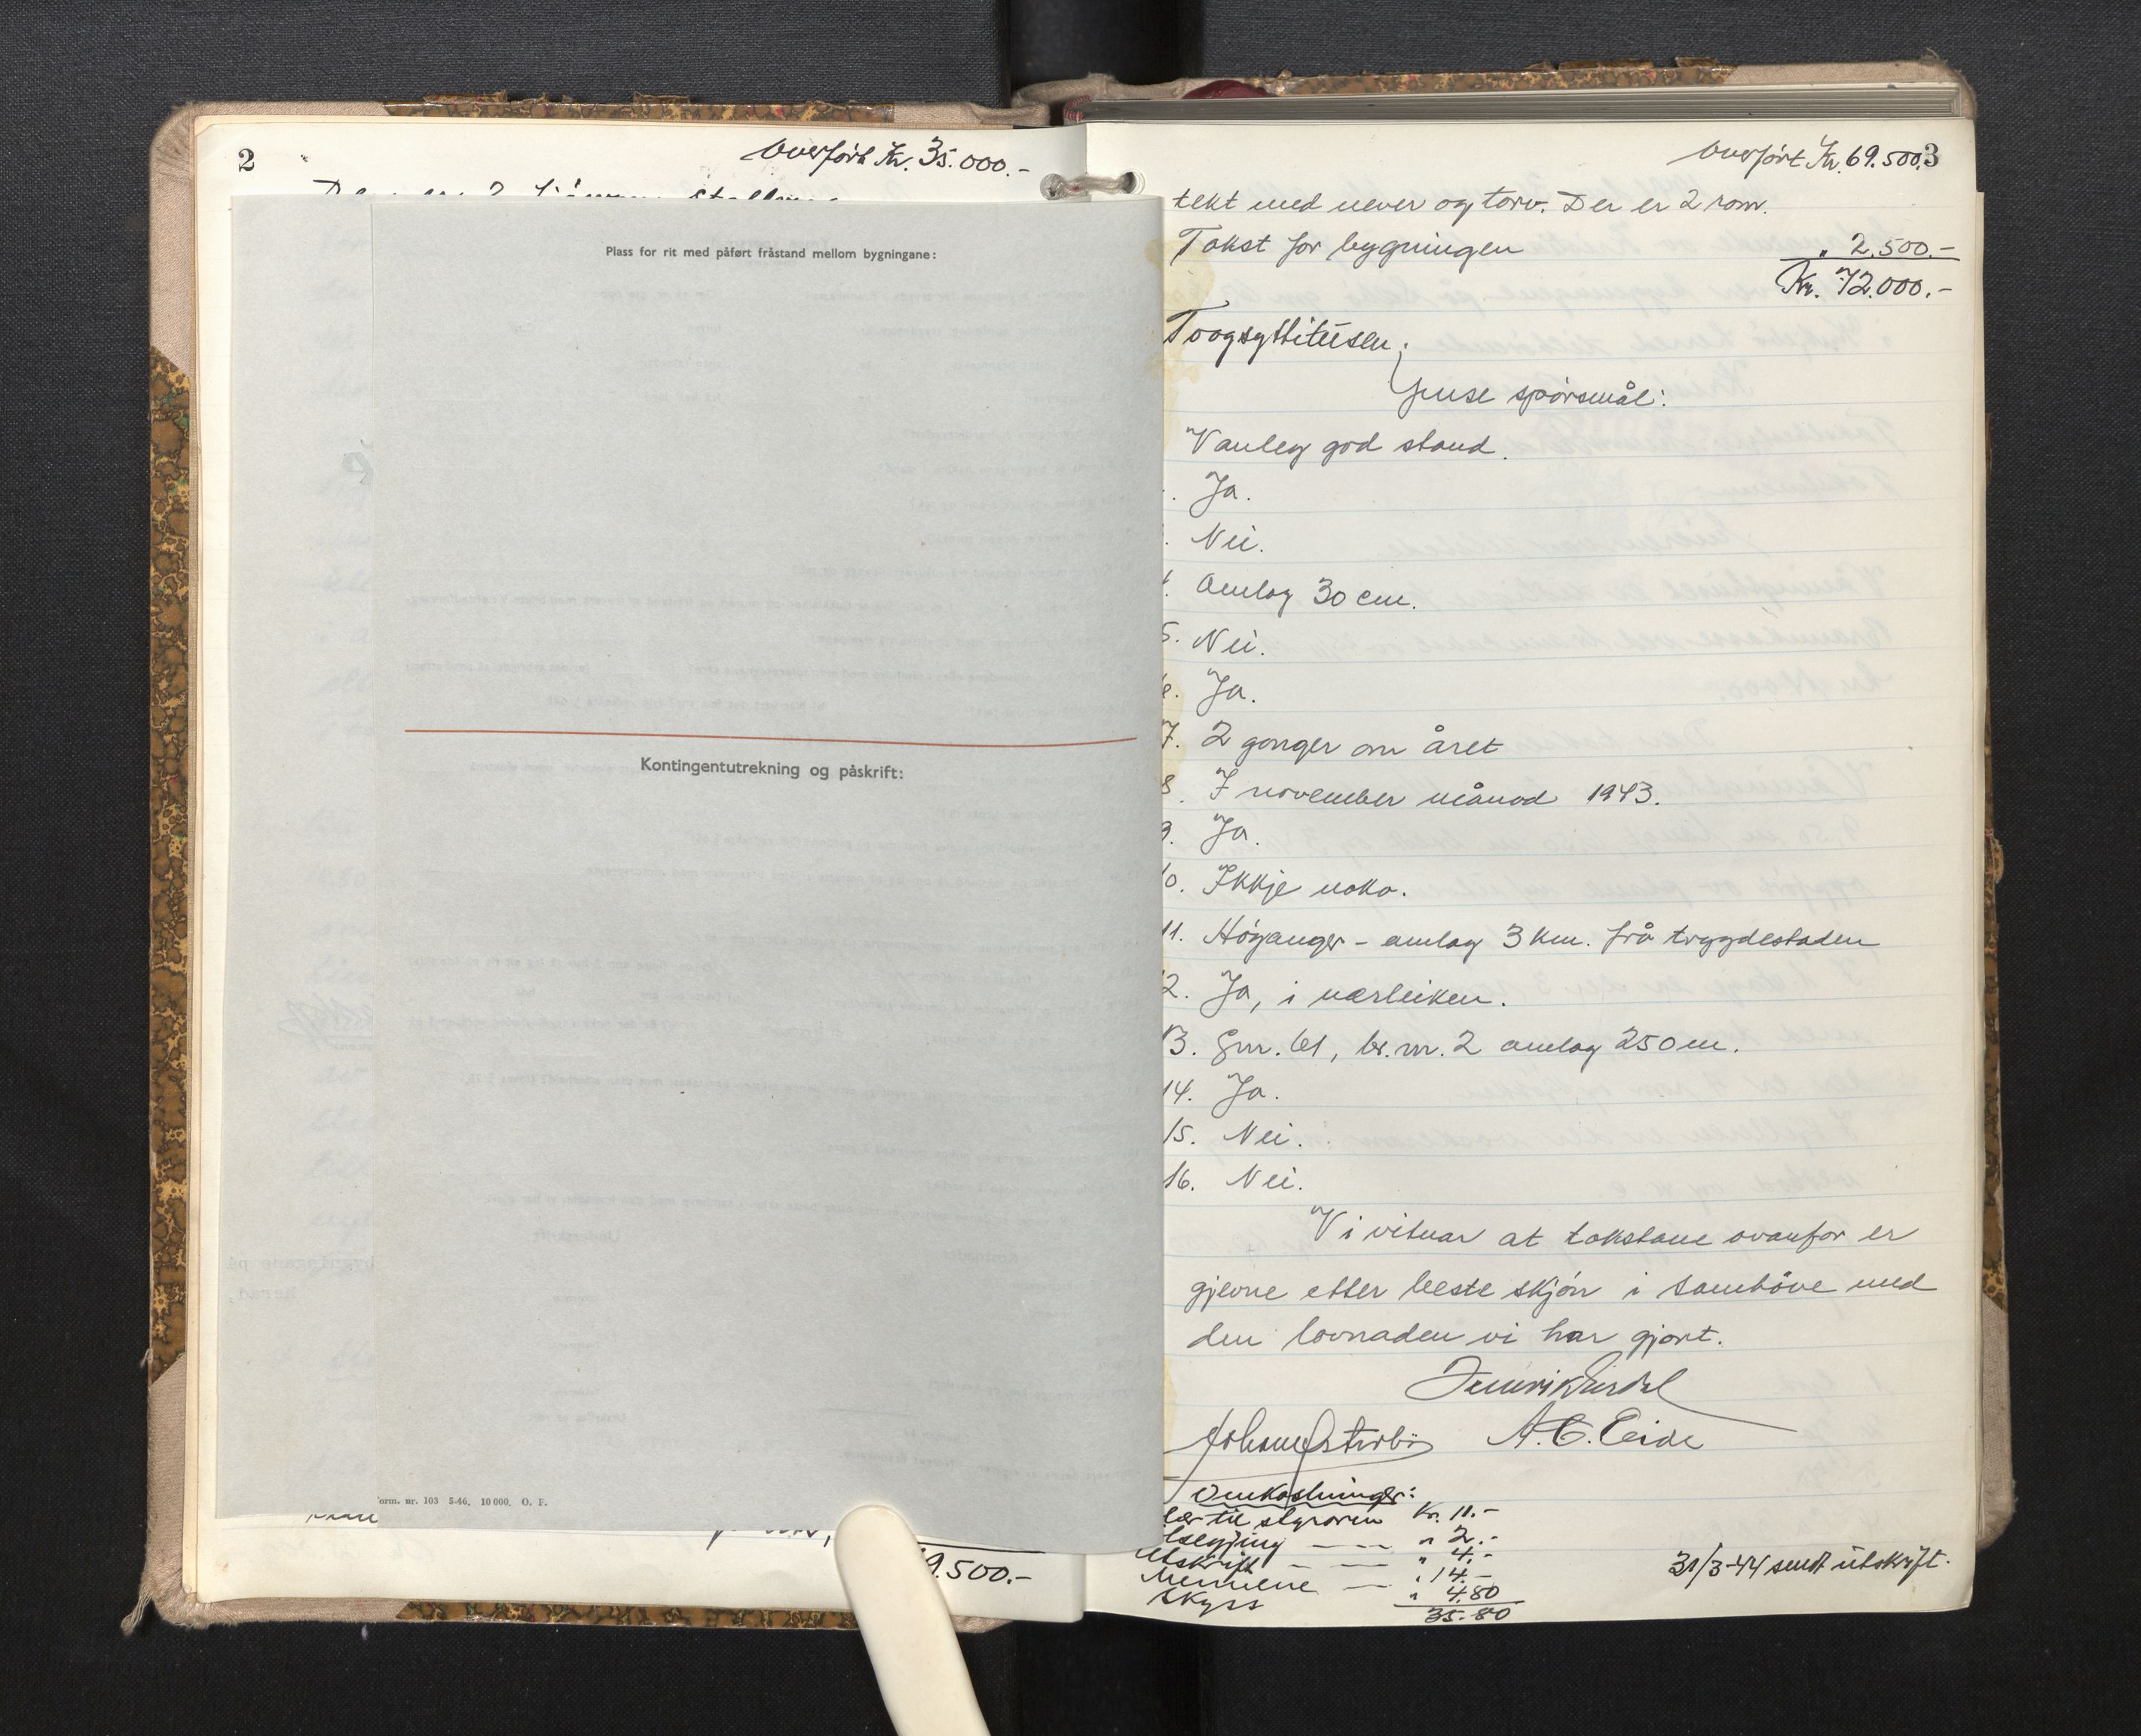 2
Overført Kr. 35.000.-
Plass for rit med påført fråstand mellom bygningane:
Kontingentutrekning og påskrift:
orm. nr. 103 5-46. 10 000. O. F.
9.500.-
Overført Kr. 69.500. 3
tekt med never og torv. Der er 2 rom.
Takst for bygningen " 2.500.-
Kr. 72.000.-
Toogsyttitusen.
Ymse spørsmål:
Vanleg god stand.
. Ja.
. Nei.
4. Omlag 30 cm.
5. Nei.
6. Ja.
7. 2 gonger om året
8. I november månad 1943.
9. Ja.
10. Ikkje noko.
11. Høyanger - omlag 3 km. frå trygdestaden
12. Ja, i nærleiken.
13. Gnr. 61, br.nr. 2 omlag 250 m.
14. Ja.
15. Nei.
16. Nei.
Vi vitnar at takstane ovanfor er
gjevne etter beste skjøn i samhøve med
den lovnaden vi har gjort.
A. C. Eide
Omkostninger:
til styraren Kr. 11.-
" 2.-
Utskrift — — " 4.-
Mennene — " 14.-
Skyss " 4.80
35.80
31/3-44 sendt utskrift.